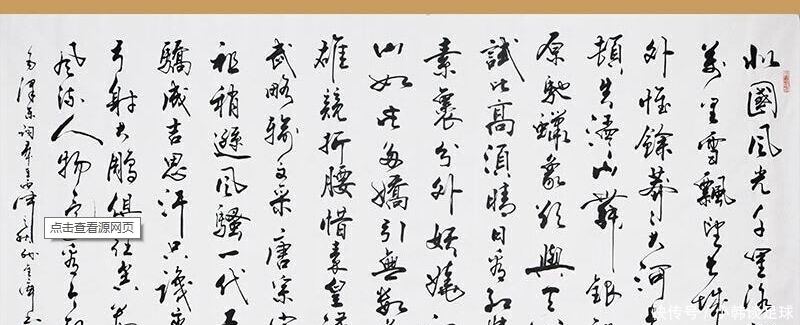 北國風光千里冰
萬里雪飄望長城
外惟餘莽々大河
頓失滔山舞銀
原馳蠟象欲與天
試比高須晴日看紅
素裹分外妖嬈
山如此多嬌引無數
雄競折腰惜秦皇
武略輸文采唐宗宋
祖稍遜風騷一代天
驕成吉思汗只識
弓射大鵰俱往矣數
風流人物還看今
毛澤東詞
点击查看源网页
快传号